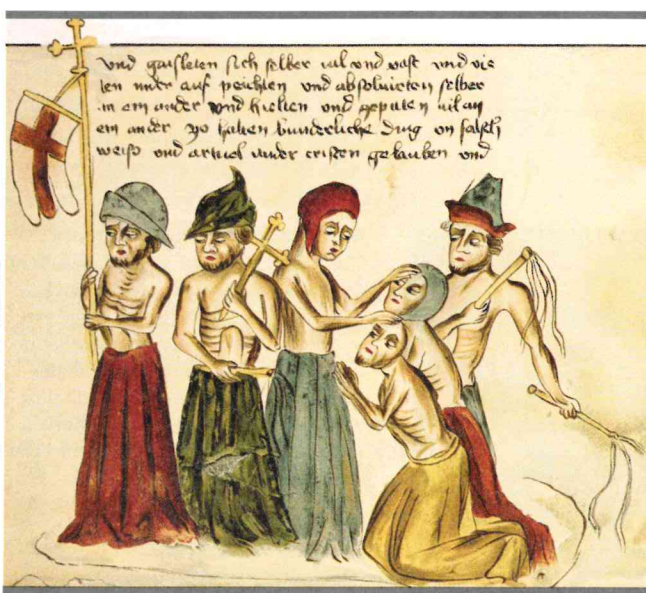 und gaisleten sich selber ual und uast und vie
len nider auf peichten und absoluirten selber
in ein ander und hielten und gepaten uil an
ein ander yo halten bunderliche ding on falsch
weiss und articel under cristen gelauben und